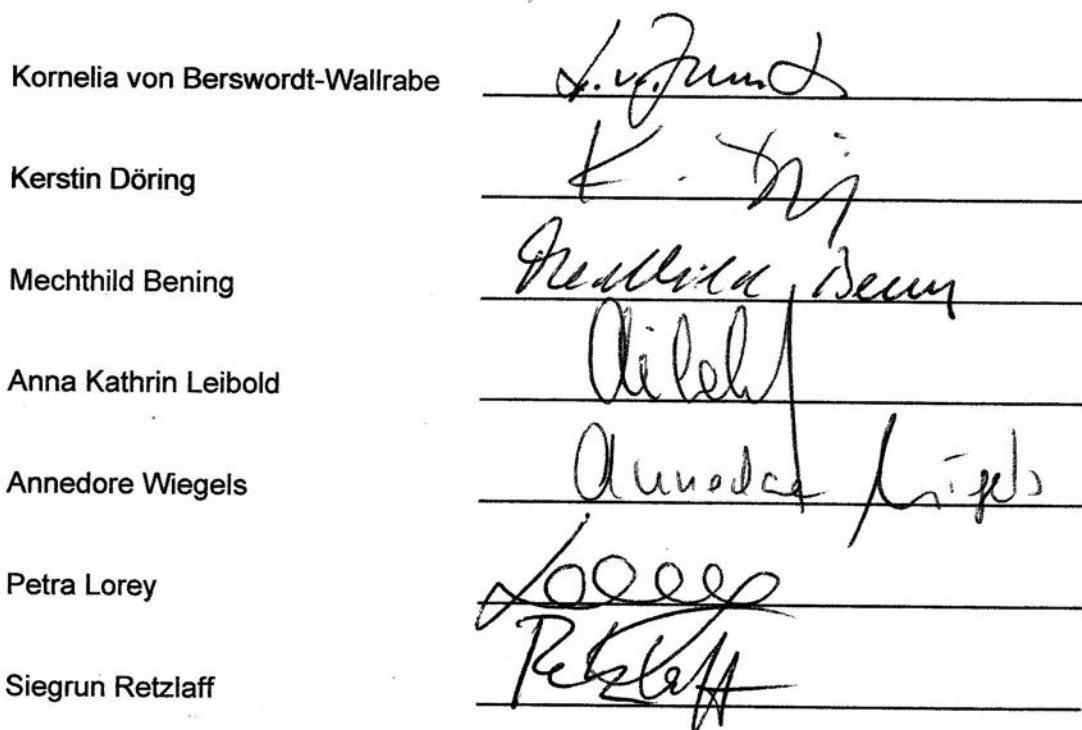 Kornelia von Berswordt-Wallrabe
Kerstin Döring K.
Mechthild Bening Mechthild
Anna Kathrin Leibold
Annedore Wiegels Annedore Wiegels
Petra Lorey Lorey
Siegrun Retzlaff Retzlaff